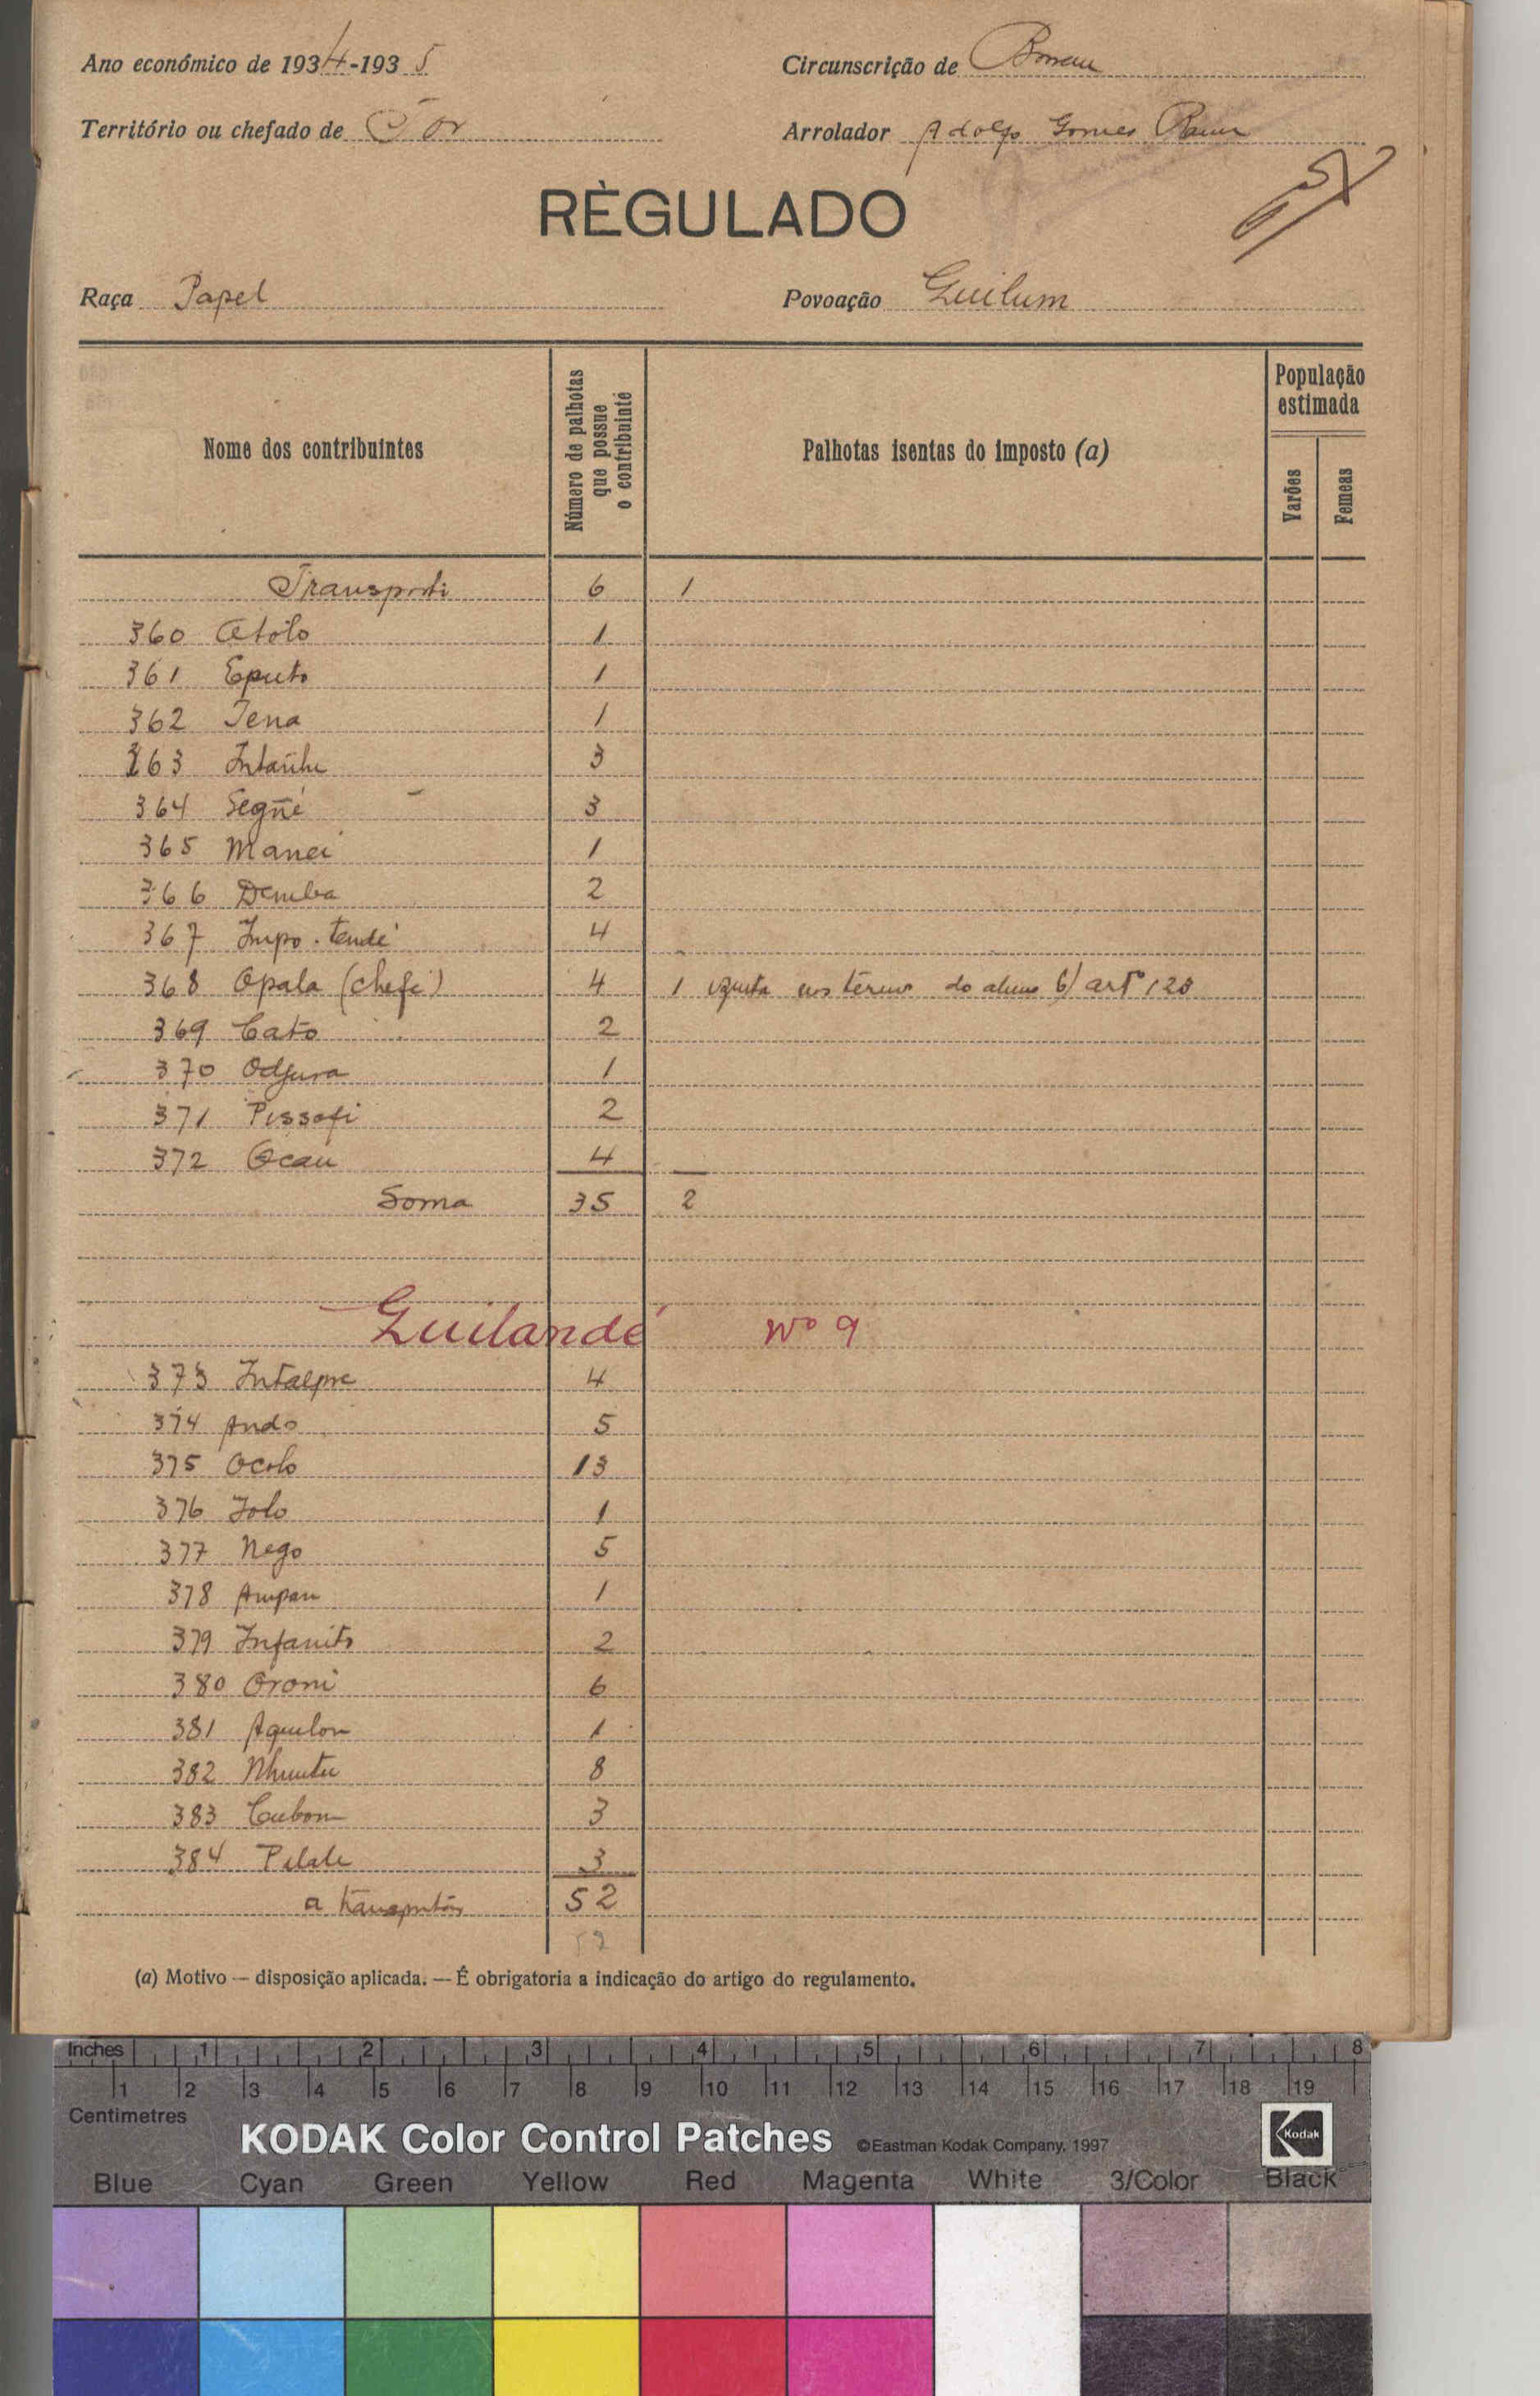 Ano económico de 1934-1935
Circunscrição de
Território ou chefado de Tor
Arrolador Adolfo Gomes
RÈGULADO
Raça Papel
Povoação Guilum
Nome dos contribuintes
Número de palhotas que possue o contribuinté
Palhotas isentas do imposto (a)
População estimada
Varões
Femeas
Transporte 6 1
360 Atolo 1
361 Eputo 1
362 Tena 1
363 3
364 Segñé 3
365 Manei 1
366 Demba 2
367 Impo. tendé 4
368 Opala (chefe) 4 1 nos termos do artº 120
369 Cato 2
370 Odjura 1
371 Pissafi 2
372 Ocau 4
Soma 35 2
Guilandé Nº 9
373 Intaepre 4
374 Ando 5
375 Ocolo 13
376 Jolo 1
377 Nego 5
378 Ampan 1
379 Infanito 2
380 Oroni 6
381 Aquilon 1
382 8
383 Cubom 3
384 Pelate 3
a transportar 52
52
(a) Motivo — disposição aplicada. — É obrigatoria a indicação do artigo do regulamento.
Inches 1 2 3 4 5 6 7 8
1 2 3 4 5 6 7 8 9 10 11 12 13 14 15 16 17 18 19
Centimetres
KODAK Color Control Patches ©Eastman Kodak Company, 1997 Kodak
Blue Cyan Green Yellow Red Magenta White 3/Color Black